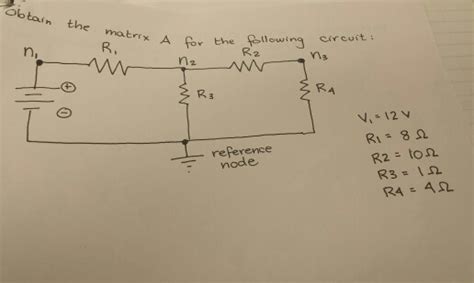 Obtain the matrix A for the following circuit:
n₁ R₁ n₂ R₂ n₃
+
R₃ R₄
−
reference
node
V₁ = 12 V
R₁ = 8 Ω
R₂ = 10 Ω
R₃ = 1 Ω
R₄ = 4 Ω